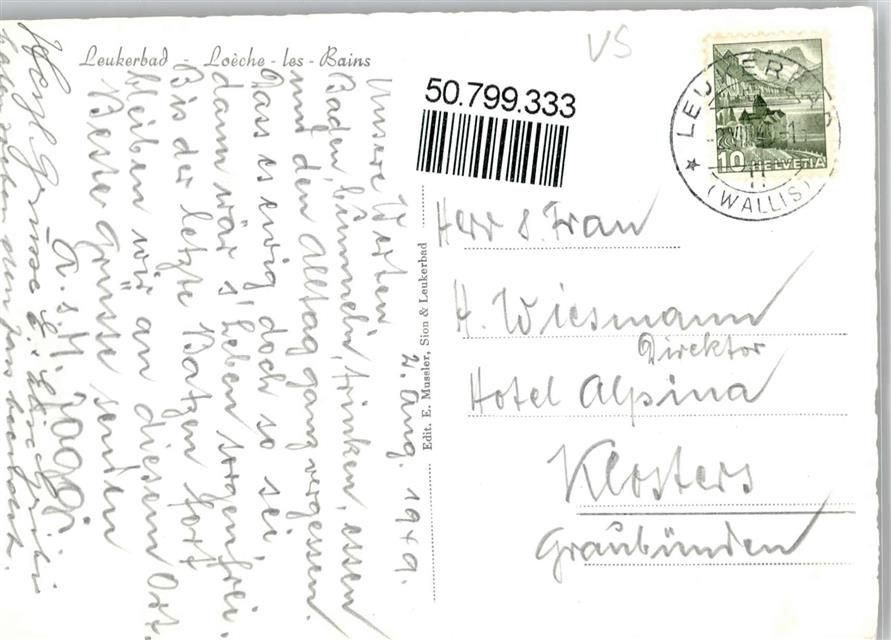 Leukerbad - Loèche-les-Bains
VS
50.799.333
LEUKERBAD
(WALLIS)
11
10 HELVETIA
2. Aug. 1949.
Unsere Werten
Baden, bummeln, trinken, essen
und den Alltag ganz vergessen.
Dass es ewig doch so sei,
dann wär s'Leben sorgenfrei.
Bis der letzte Batzen fort
bleiben wir an diesem Ort.
Beste Grüsse senden
A. s. M. Jaggi
Herzl. Grüsse E.
Edit. E. Mussler, Sion & Leukerbad
Herr & Frau
H. Wiesmann
Direktor
Hotel Alpina
Klosters
Graubünden